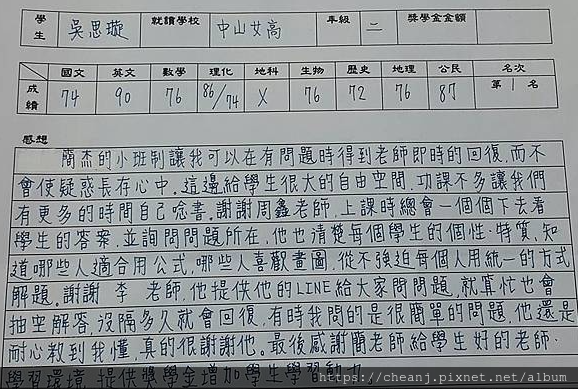 學生 吳思璇 就讀學校 中山女高 年級 二 獎學金金額
國文 英文 數學 理化 地科 生物 歷史 地理 公民 名次
成績 74 90 76 86/74 X 76 72 76 87 第 1 名
感想
簡杰的小班制讓我可以在有問題時得到老師即時的回復,而不
會使疑惑長存心中。這邊給學生很大的自由空間,功課不多讓我們
有更多的時間自己唸書。謝謝周鑫老師,上課時總會一個個下去看
學生的答案,並詢問問題所在,他也清楚每個學生的個性、特質,知
道哪些人適合用公式,哪些人喜歡畫圖,從不強迫每個人用統一的方式
解題。謝謝 李 老師,他提供他的LINE給大家問問題,就算忙也會
抽空解答,沒隔多久就會回復,有時我問的是很簡單的問題,他還是
耐心教到我懂,真的很謝謝他。最後感謝簡老師給學生好的老師、
學習環境,提供獎學金增加學生學習動力。
https://cheanj.pixnet.net/album